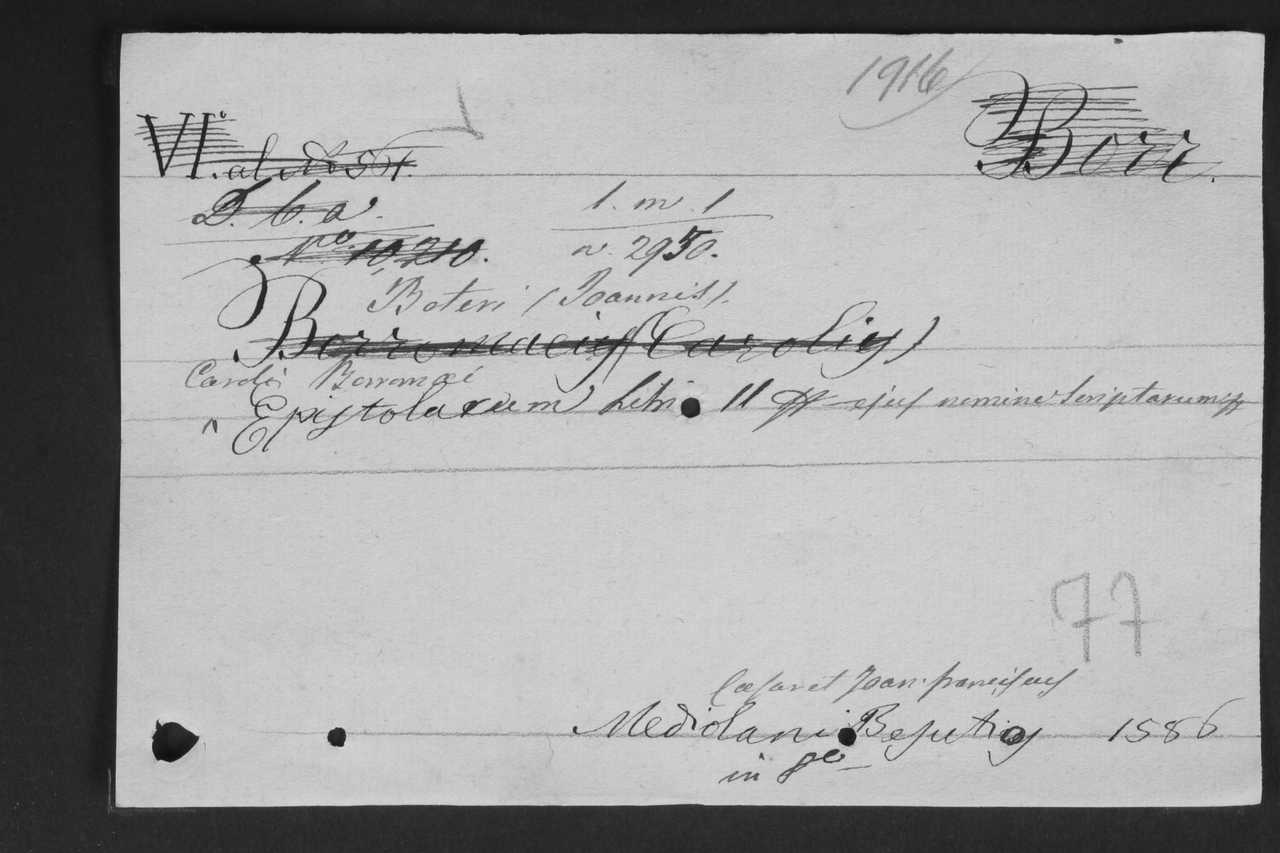 1916
VI.° al No 561.
Borr.
D. b. a.
1. m. 1
No. 10,210.
n. 2950.
Boteri (Joannis).
Borromaeus (Carolus)
Caroli Borromæi
Epistolarum Libri II ejus nomine Scriptarum
77
Cæsar et Joan. franciscus
Mediolani Besutius 1586
in 8°